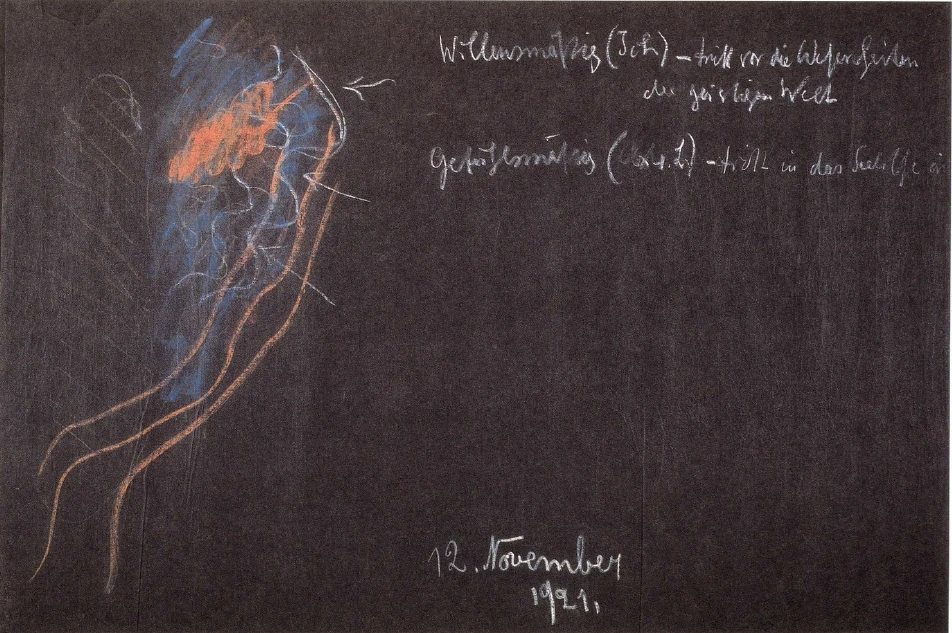 Willensmäßig (Ich) – tritt vor die Wesenheiten
der geistigen Welt
Gefühlsmäßig (Astr. L) – tritt in das Seelische ei
12. November
1921.